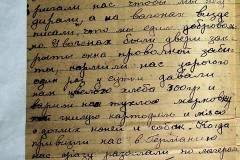 пихали нас чтобы мы не
дирали, а на вагонах везде
писали, что мы едем добровол
на. У вагонах были двери зак
рыты окна проволкой заби
ты, кормили нас дорогою
один раз у сутки давали
нам хлеба 300гр и
варили нас тухлая морковка
гнилую картофель и мясо
дохлых коней и собак. Когда
привезли нас в Германию
нас сразу разослали по лагерям